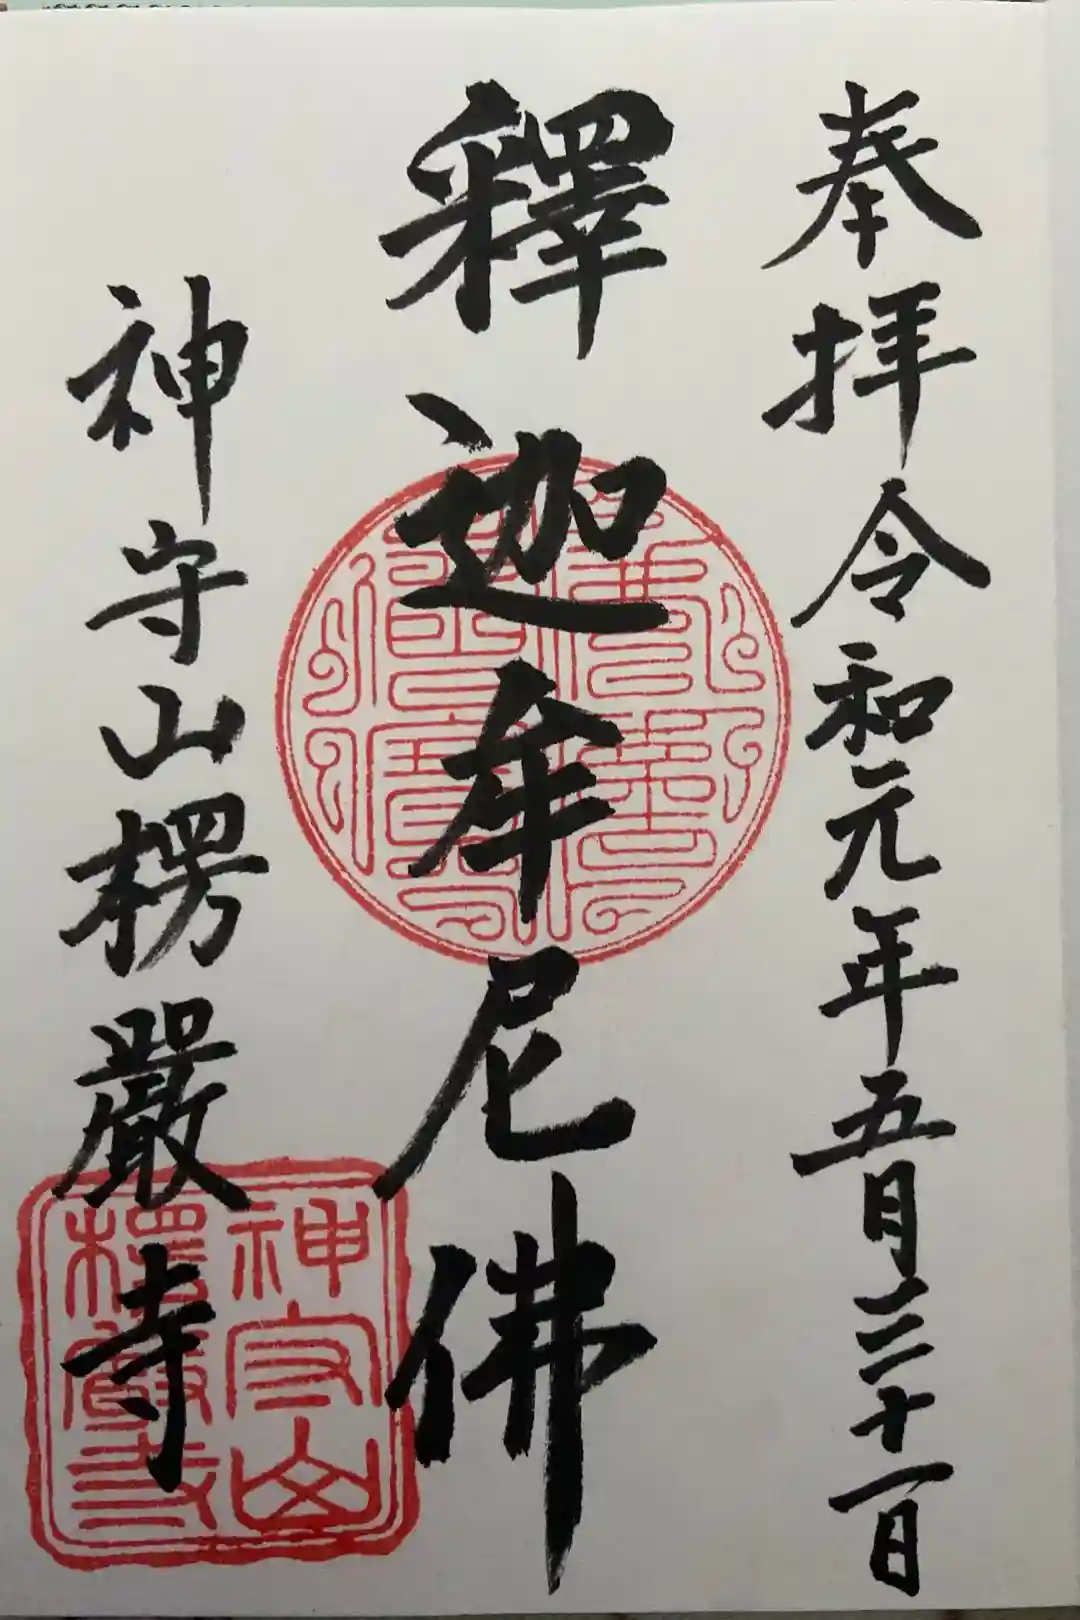 奉拝 令和元年五月三十一日
釋迦牟尼佛
神守山楞嚴寺
神守山
楞嚴寺